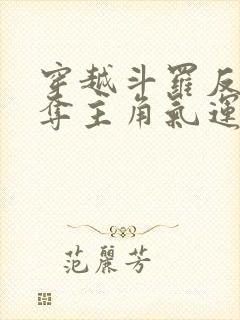 穿越斗羅反
奪主角氣運
范麗芳